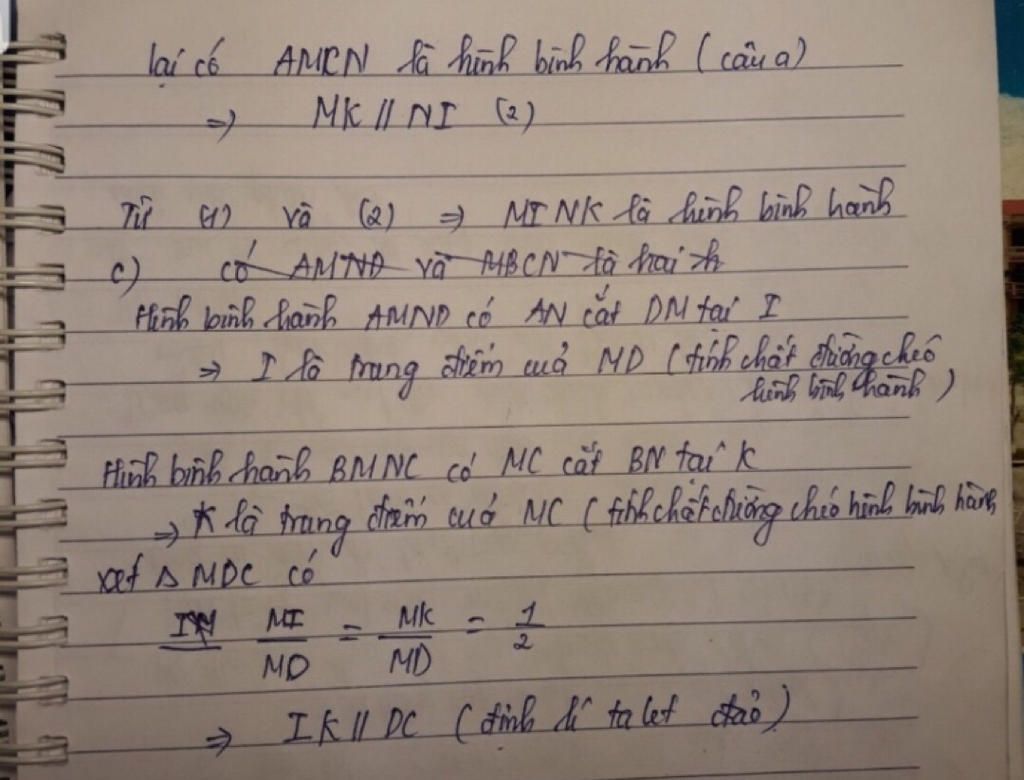 lại có AMCN là hình bình hành (câu a)
=> MK // NI (2)
Từ (1) và (2) => MINK là hình bình hành
c) có AMND và MBCN là hai h
Hình bình hành AMND có AN cắt DM tại I
=> I là trung điểm cuả MD (tính chất đường chéo
hình bình hành)
Hình bình hành BMNC có MC cắt BN tại K
=> K là trung điểm cuả MC (tính chất đường chéo hình bình hành
xét Δ MDC có
IN MI/MD = MK/MD = 1/2
=> IK // DC (định lí ta let đảo)